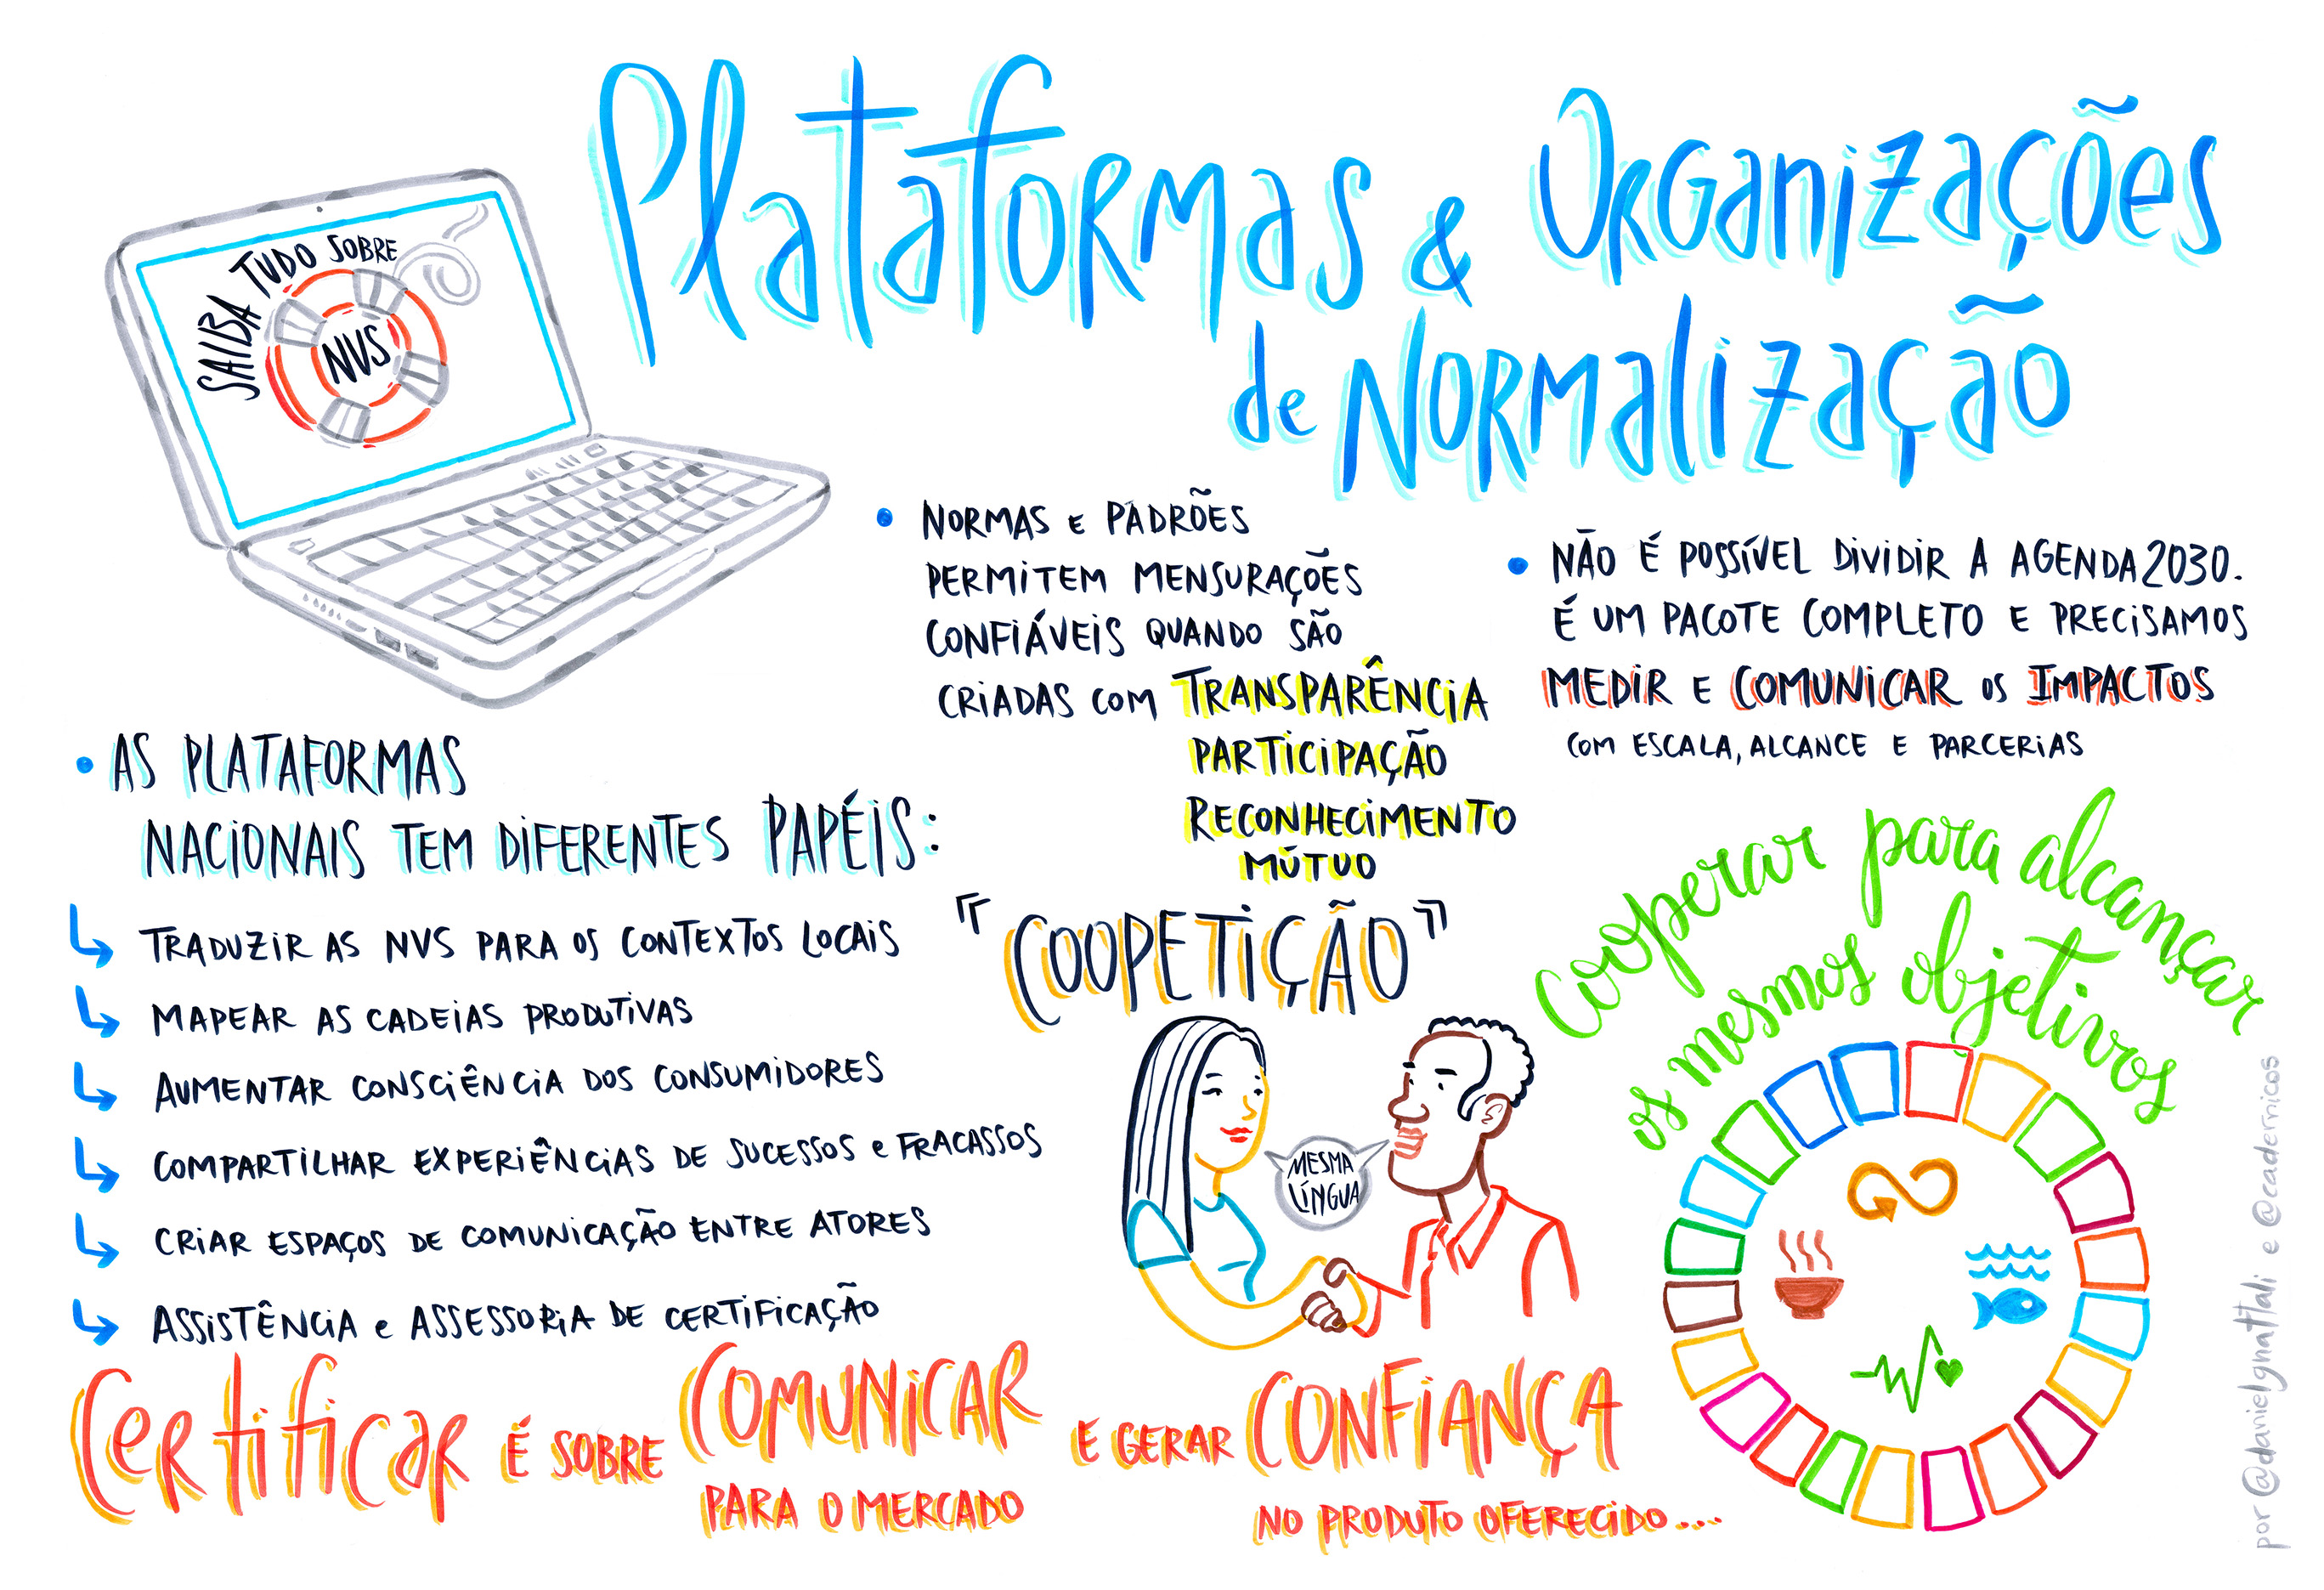 Plataformas & Organizações
de Normalização
SAIBA TUDO SOBRE
NVS
• NORMAS e PADRÕES
PERMITEM MENSURAÇÕES
CONFIÁVEIS QUANDO SÃO
CRIADAS COM TRANSPARÊNCIA
PARTICIPAÇÃO
RECONHECIMENTO
MÚTUO
• NÃO É POSSÍVEL DIVIDIR A AGENDA 2030.
É UM PACOTE COMPLETO E PRECISAMOS
MEDIR E COMUNICAR OS IMPACTOS
COM ESCALA, ALCANCE E PARCERIAS
• AS PLATAFORMAS
NACIONAIS TEM DIFERENTES PAPÉIS:
TRADUZIR AS NVS PARA OS CONTEXTOS LOCAIS
MAPEAR AS CADEIAS PRODUTIVAS
AUMENTAR CONSCIÊNCIA DOS CONSUMIDORES
COMPARTILHAR EXPERIÊNCIAS DE SUCESSOS e FRACASSOS
CRIAR ESPAÇOS DE COMUNICAÇÃO ENTRE ATORES
ASSISTÊNCIA e ASSESSORIA DE CERTIFICAÇÃO
"COOPETIÇÃO"
MESMA
LÍNGUA
cooperar para alcançar
os mesmos objetivos
Certificar É SOBRE COMUNICAR E GERAR CONFIANÇA
PARA O MERCADO NO PRODUTO OFERECIDO....
por @danielgnattali e @cadernicos